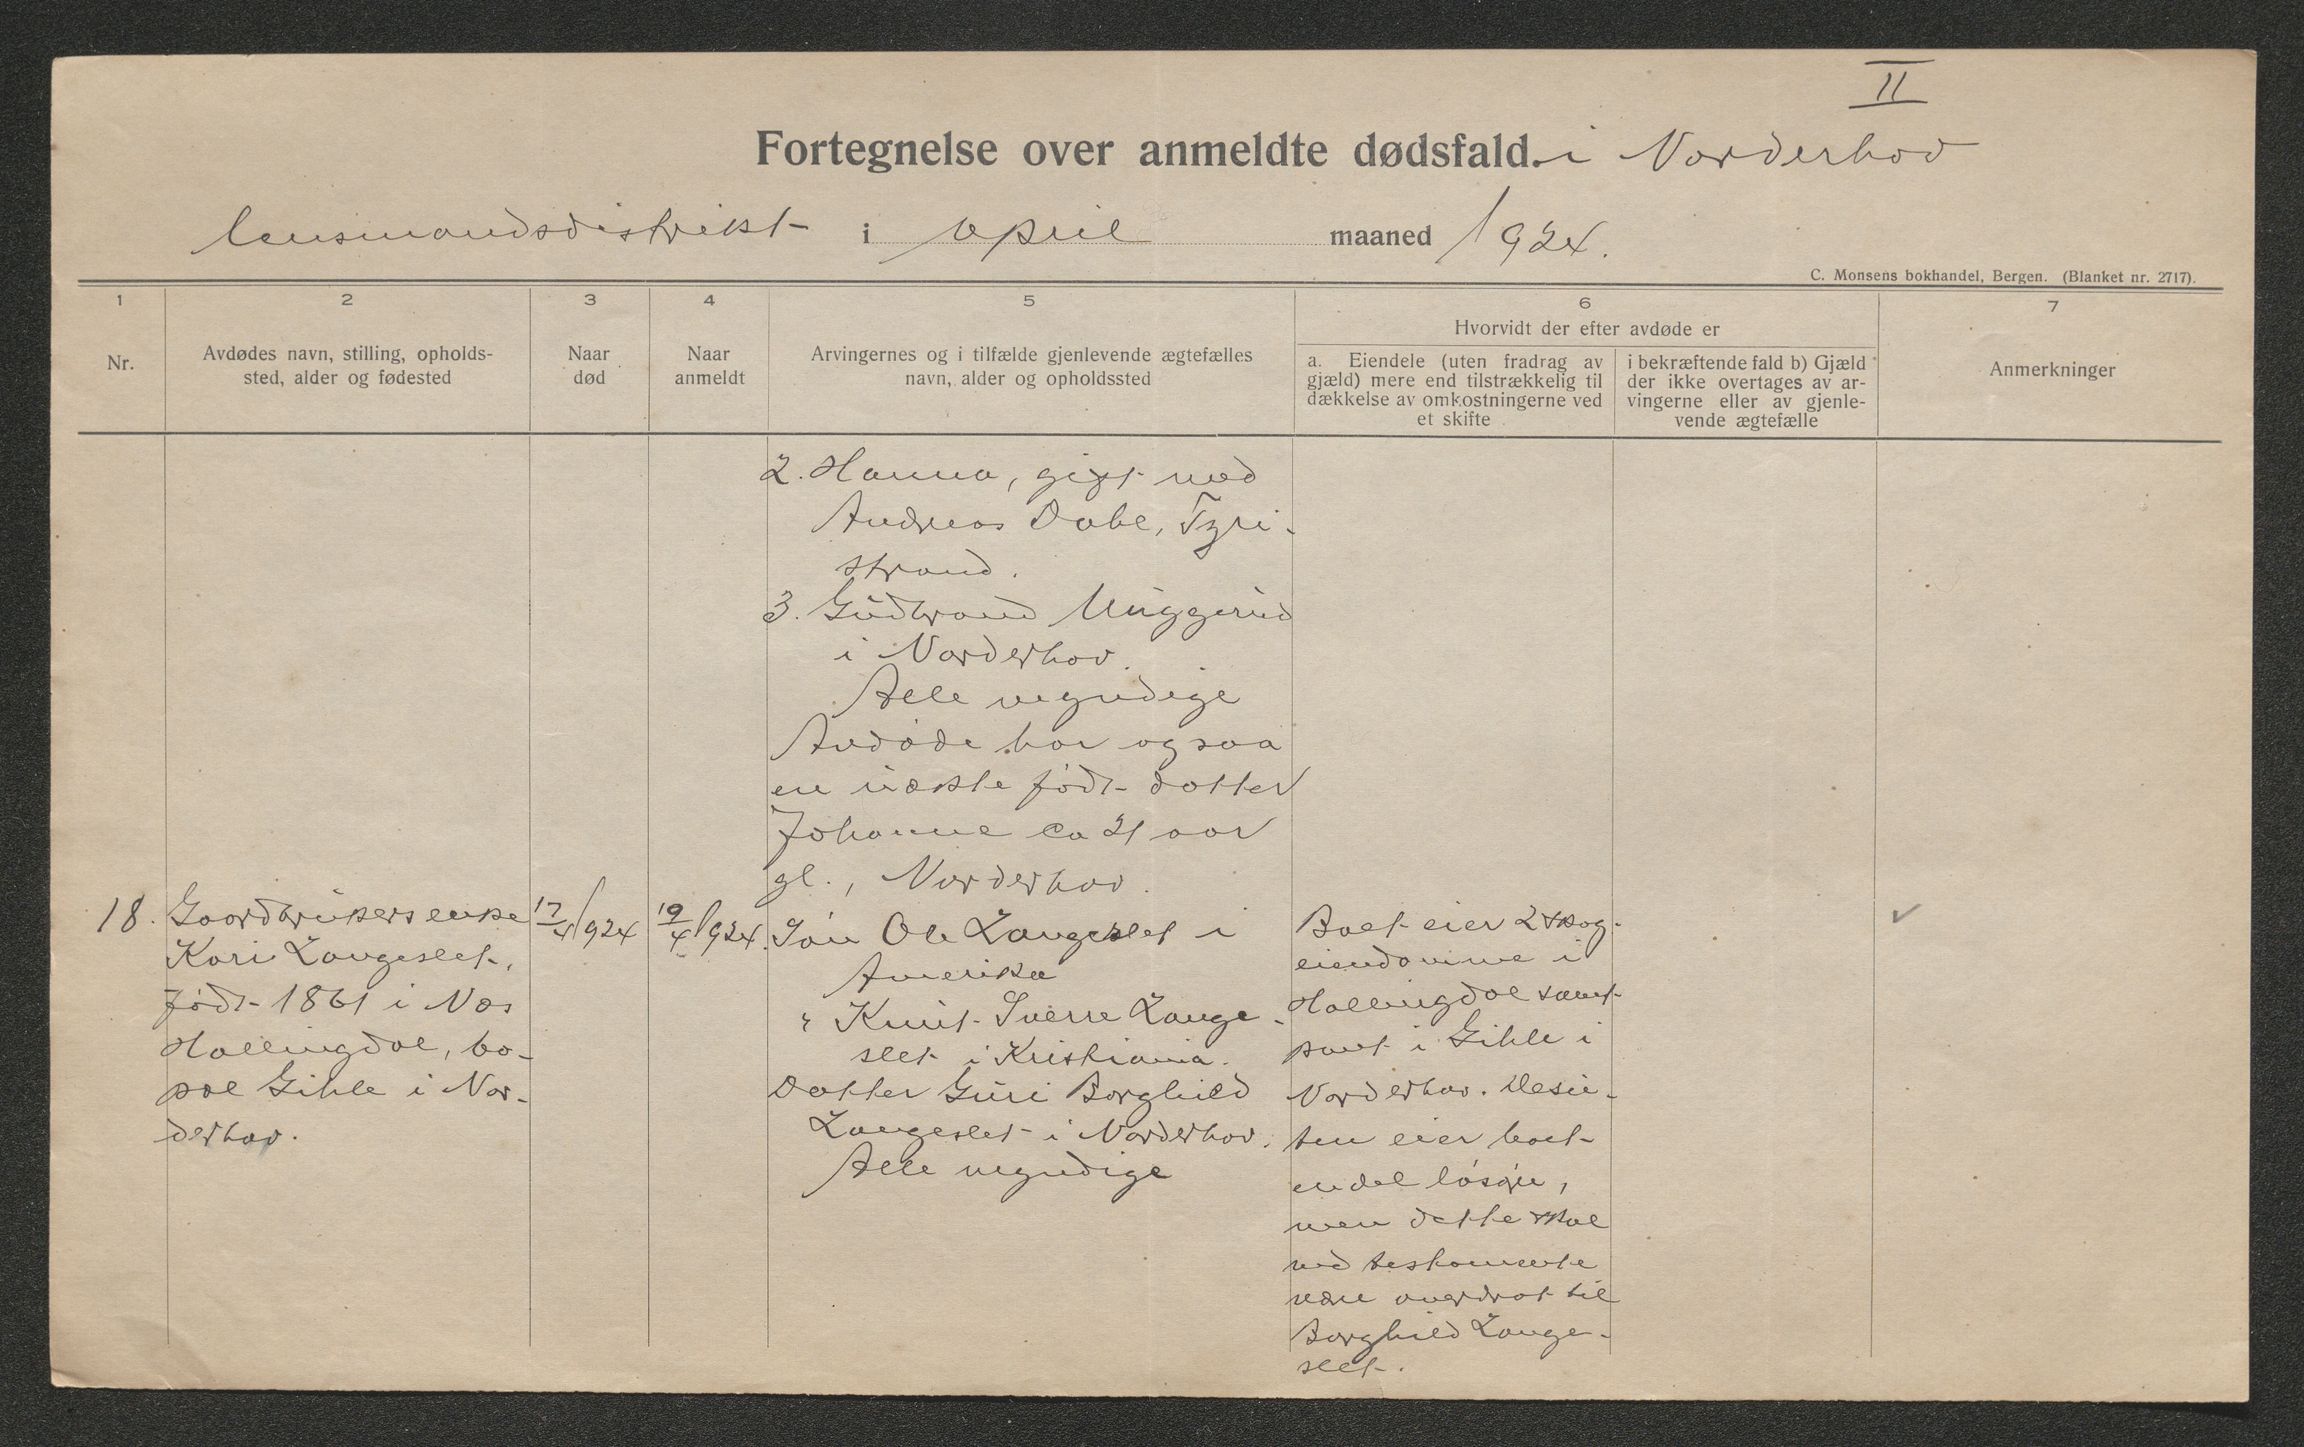 II
Fortegnelse over anmeldte dødsfald. i Norderhov
lensmandsdistrikt i april maaned 1924.
C. Monsens bokhandel, Bergen. (Blanket nr. 2717).
1 2 3 4 5 6 7
Nr.
Avdødes navn, stilling, opholds-
sted, alder og fødested
Naar
død
Naar
anmeldt
Arvingernes og i tilfælde gjenlevende ægtefælles
navn, alder og opholdssted
Hvorvidt der efter avdøde er
a. Eiendele (uten fradrag av
gjæld) mere end tilstrækkelig til
dækkelse av omkostningerne ved
et skifte
i bekræftende fald b) Gjæld
der ikke overtages av ar-
vingerne eller av gjenle-
vende ægtefælle
Anmerkninger
2. Hanna, gift med
Andreas Dahl, Tyri-
strand.
3. Gudbrand Muggerud
i Norderhov.
Alle myndige
Avdøde har ogsaa
en uækte født datter
Johanne ca 21 aar
gl., Norderhov.
18.
Gaardbrukersenke
Kari Langeslet,
født 1861 i Nes
Hallingdal, bo-
pæl Gihle i Nor-
derhov.
17/4 1924
19/4 1924.
Søn Ole Langeslet i
Amerika
" Knut Sverre Lange-
slet i Kristiania.
Datter Guri Borghild
Langeslet i Norderhov.
Alle myndige
Boet eier 2 skog-
eiendomme i
Hallingdal samt
part i Gihle i
Norderhov. Desu-
ten eier boet
endel løsøre,
men dette skal
ved testamente
være overdrat til
Borghild Lange-
slet.